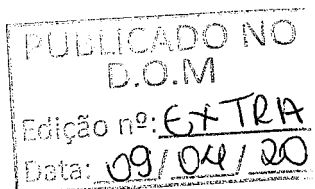 PUBLICADO NO
D.O.M
Edição nº: EXTRA
Data: 09/04/20